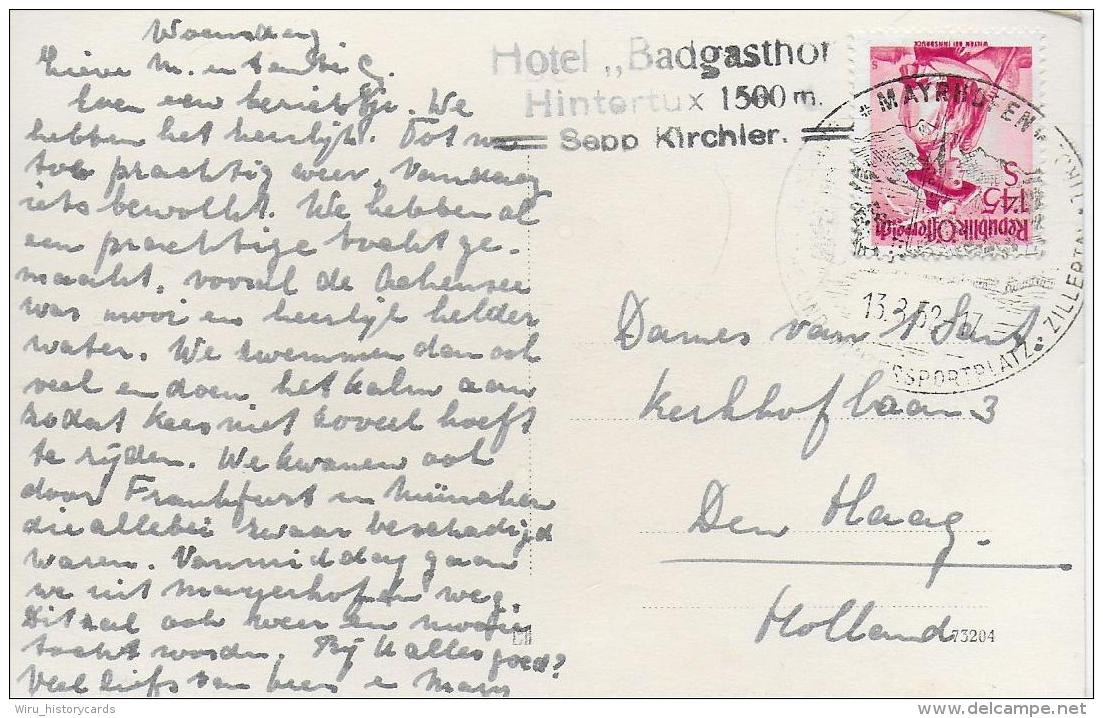 Woensdag
Lieve M. en tante C.
Even een berichtje. We
hebben het heerlijk. Tot nu
toe prachtig weer, vandaag
iets bewolkt. We hebben al
een prachtige tocht ge-
maakt, vooral de Achensee
was mooi en heerlijk helder
water. We zwemmen dan ook
veel en doen het kalm aan
zodat Kees niet zoveel hoeft
te rijden. We kwamen ook
door Frankfurt en München
die allebei zwaar beschadigd
waren. Vanmiddag gaan
we uit Mayerhofen weg.
Dit zal ook weer een mooie
tocht worden. Bij U alles goed?
Veel liefs van
Hotel „Badgasthof
Hintertux 1500 m.
Sepp Kirchler.
WILTEN BEI INNSBRUCK
S
1'45
Republik Österreich
* MAYRHOFEN *
ZILLERTAL, TIROL
SPORTPLATZ
Dames van 't Sant.
Kerkhoflaan 3
Den Haag.
Holland
73204
Wiru_historycards
delcampe.net